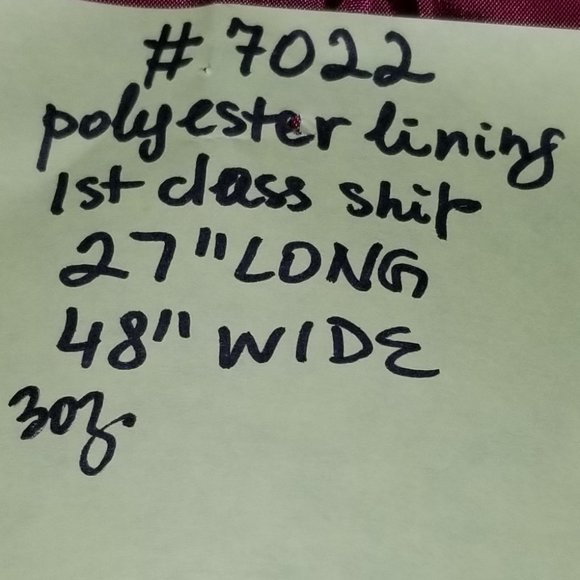 # 7022
polyester lining
1st class ship
27" LONG
48" WIDE
3oz.